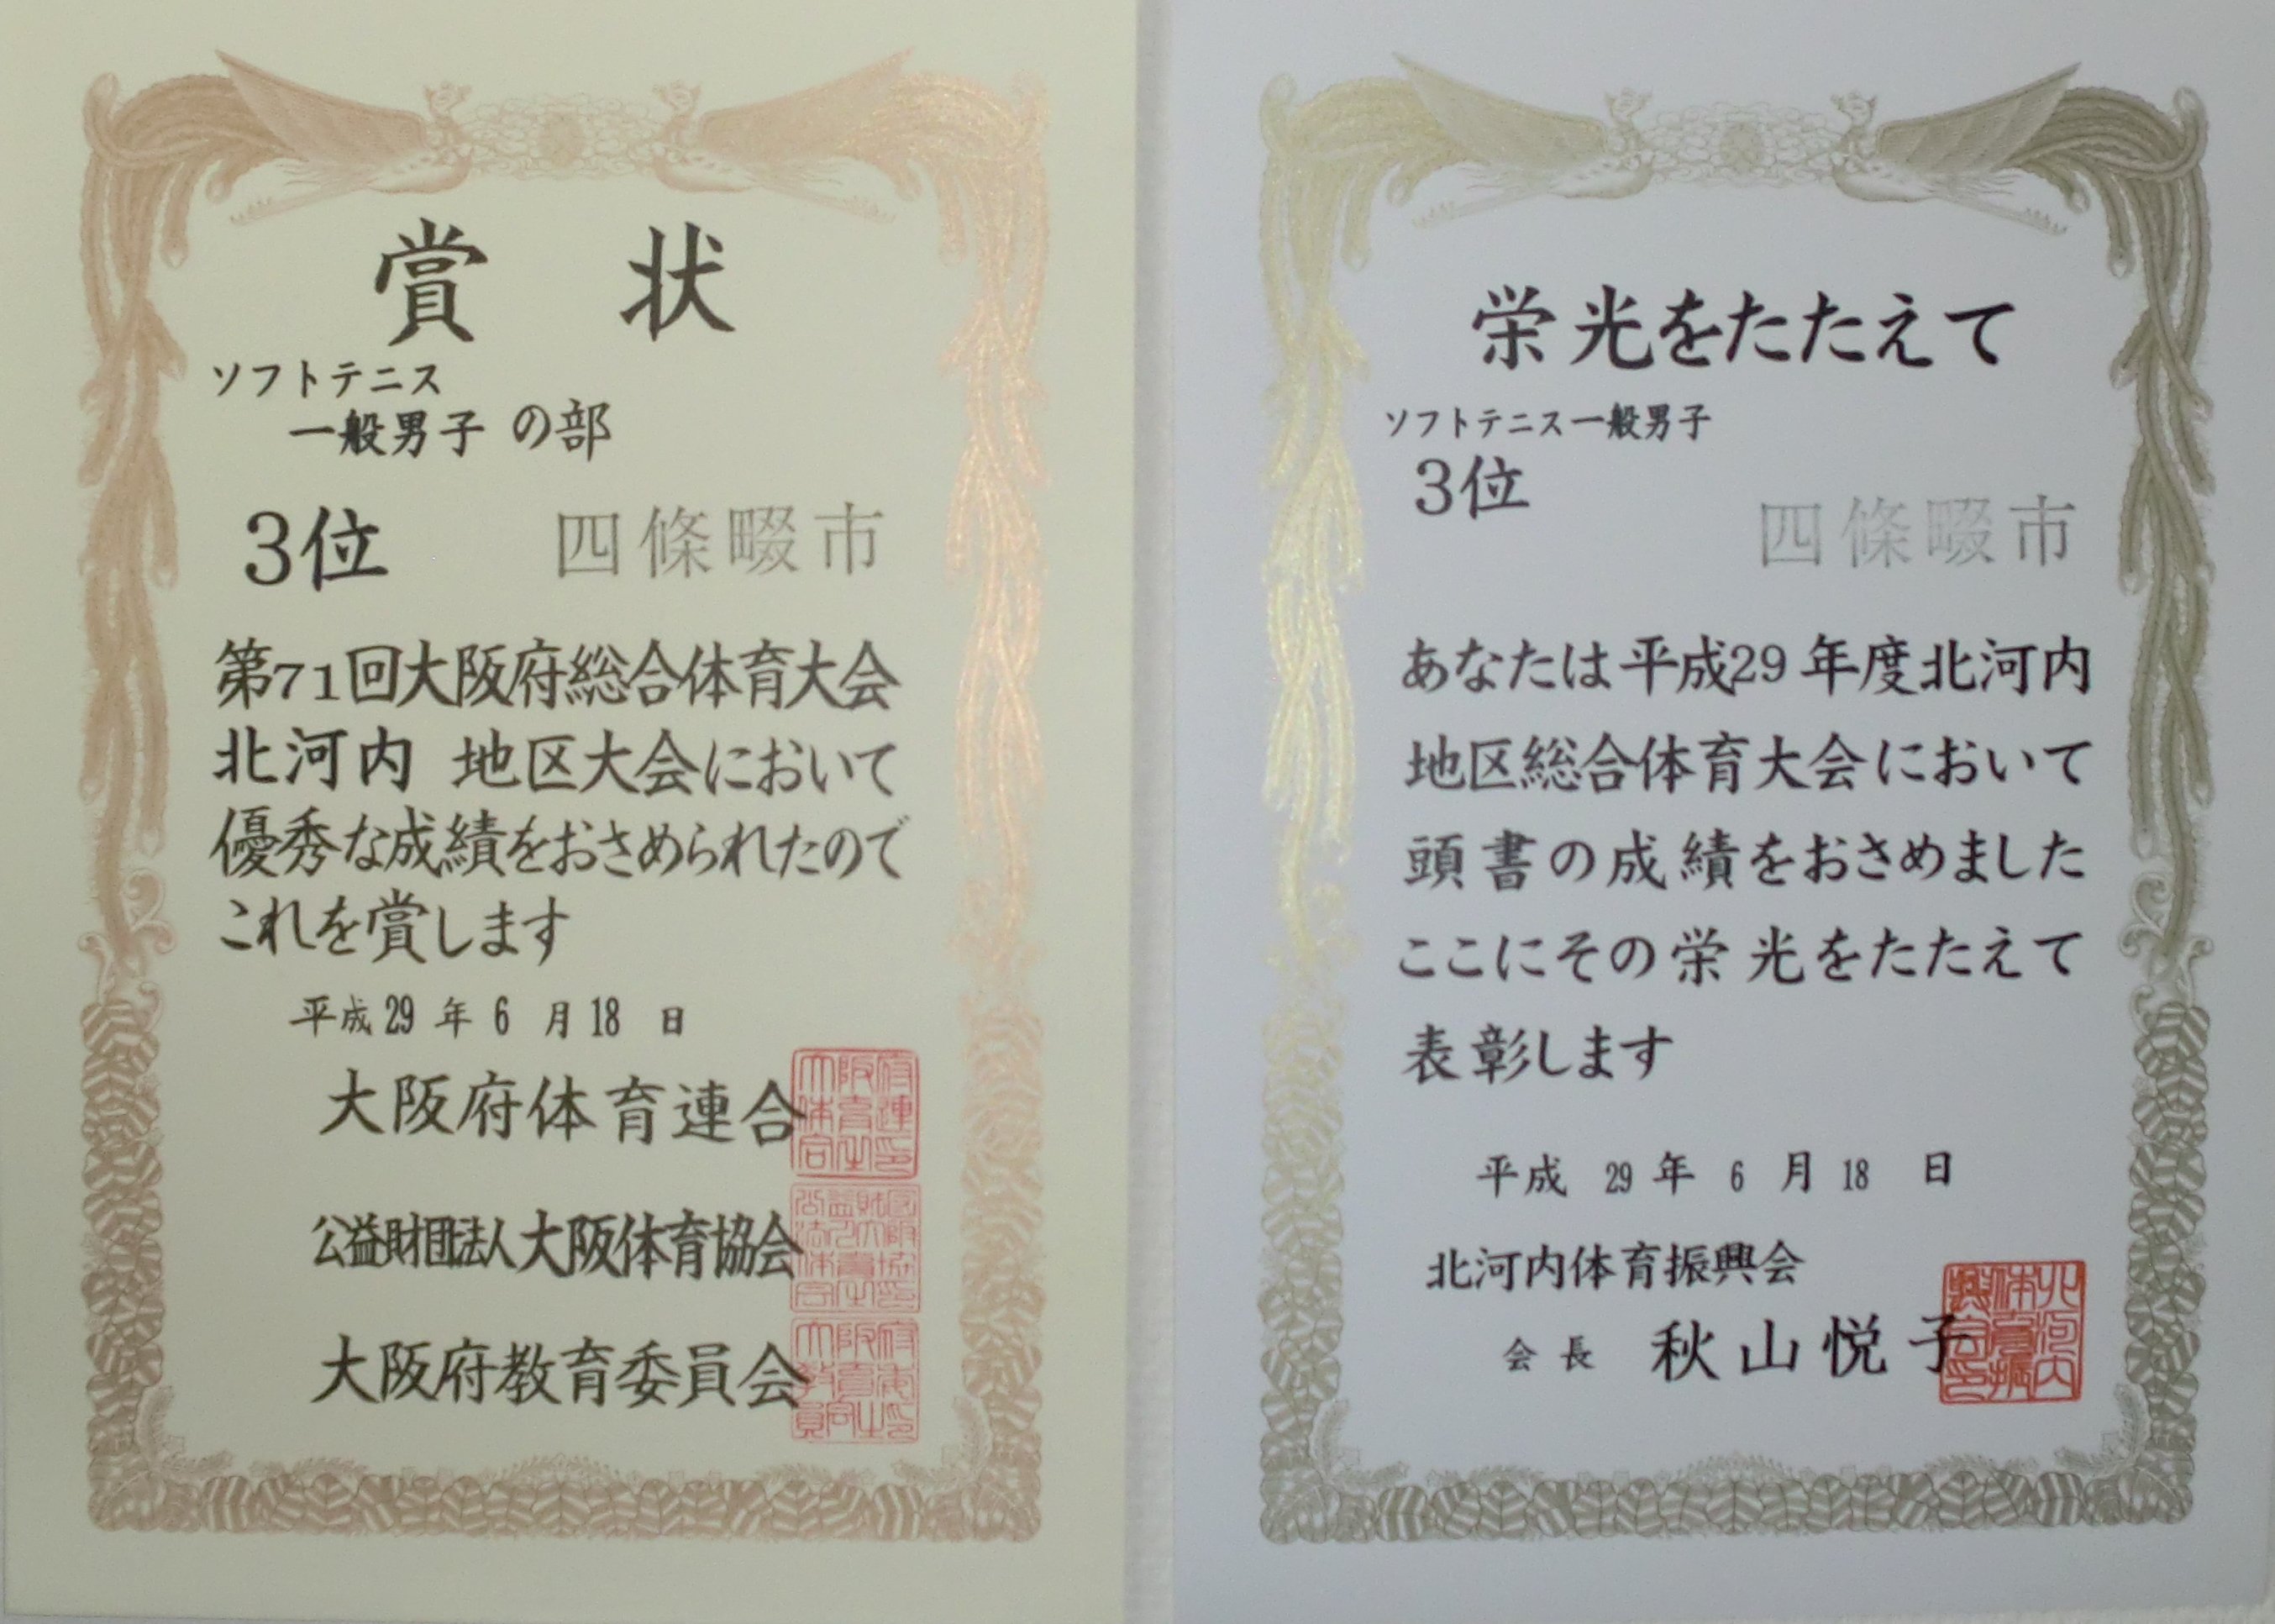 賞状
ソフトテニス
一般男子の部
3位 四條畷市
第71回大阪府総合体育大会
北河内 地区大会において
優秀な成績をおさめられたので
これを賞します
平成29年6月18日
大阪府体育連合
公益財団法人大阪体育協会
大阪府教育委員会
栄光をたたえて
ソフトテニス一般男子
3位
四條畷市
あなたは平成29年度北河内
地区総合体育大会において
頭書の成績をおさめました
ここにその栄光をたたえて
表彰します
平成29年6月18日
北河内体育振興会
会長 秋山悦子